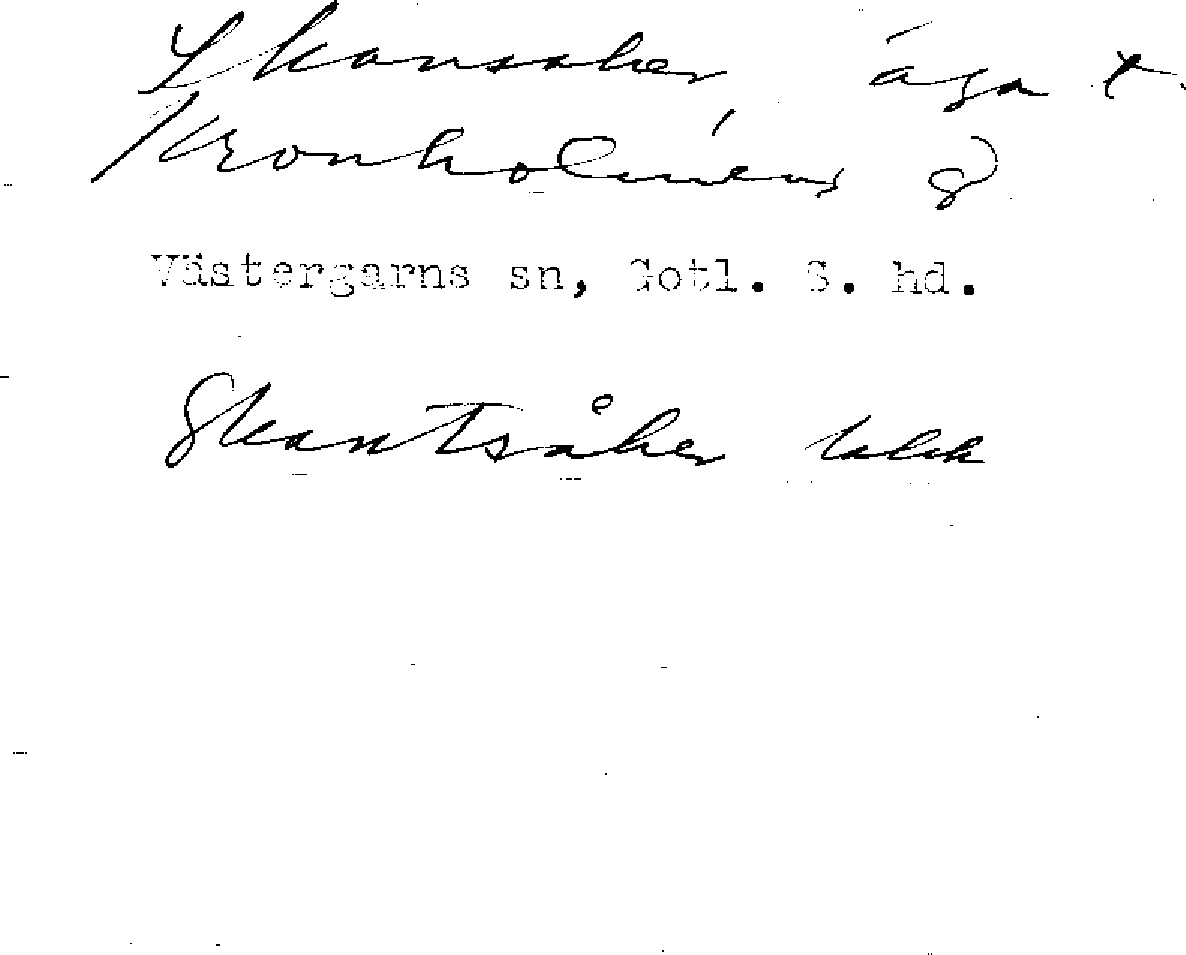 Skansaker äga t.
Kronholmens g
Västergarns sn, Gotl. S. hd.
Skantsåker